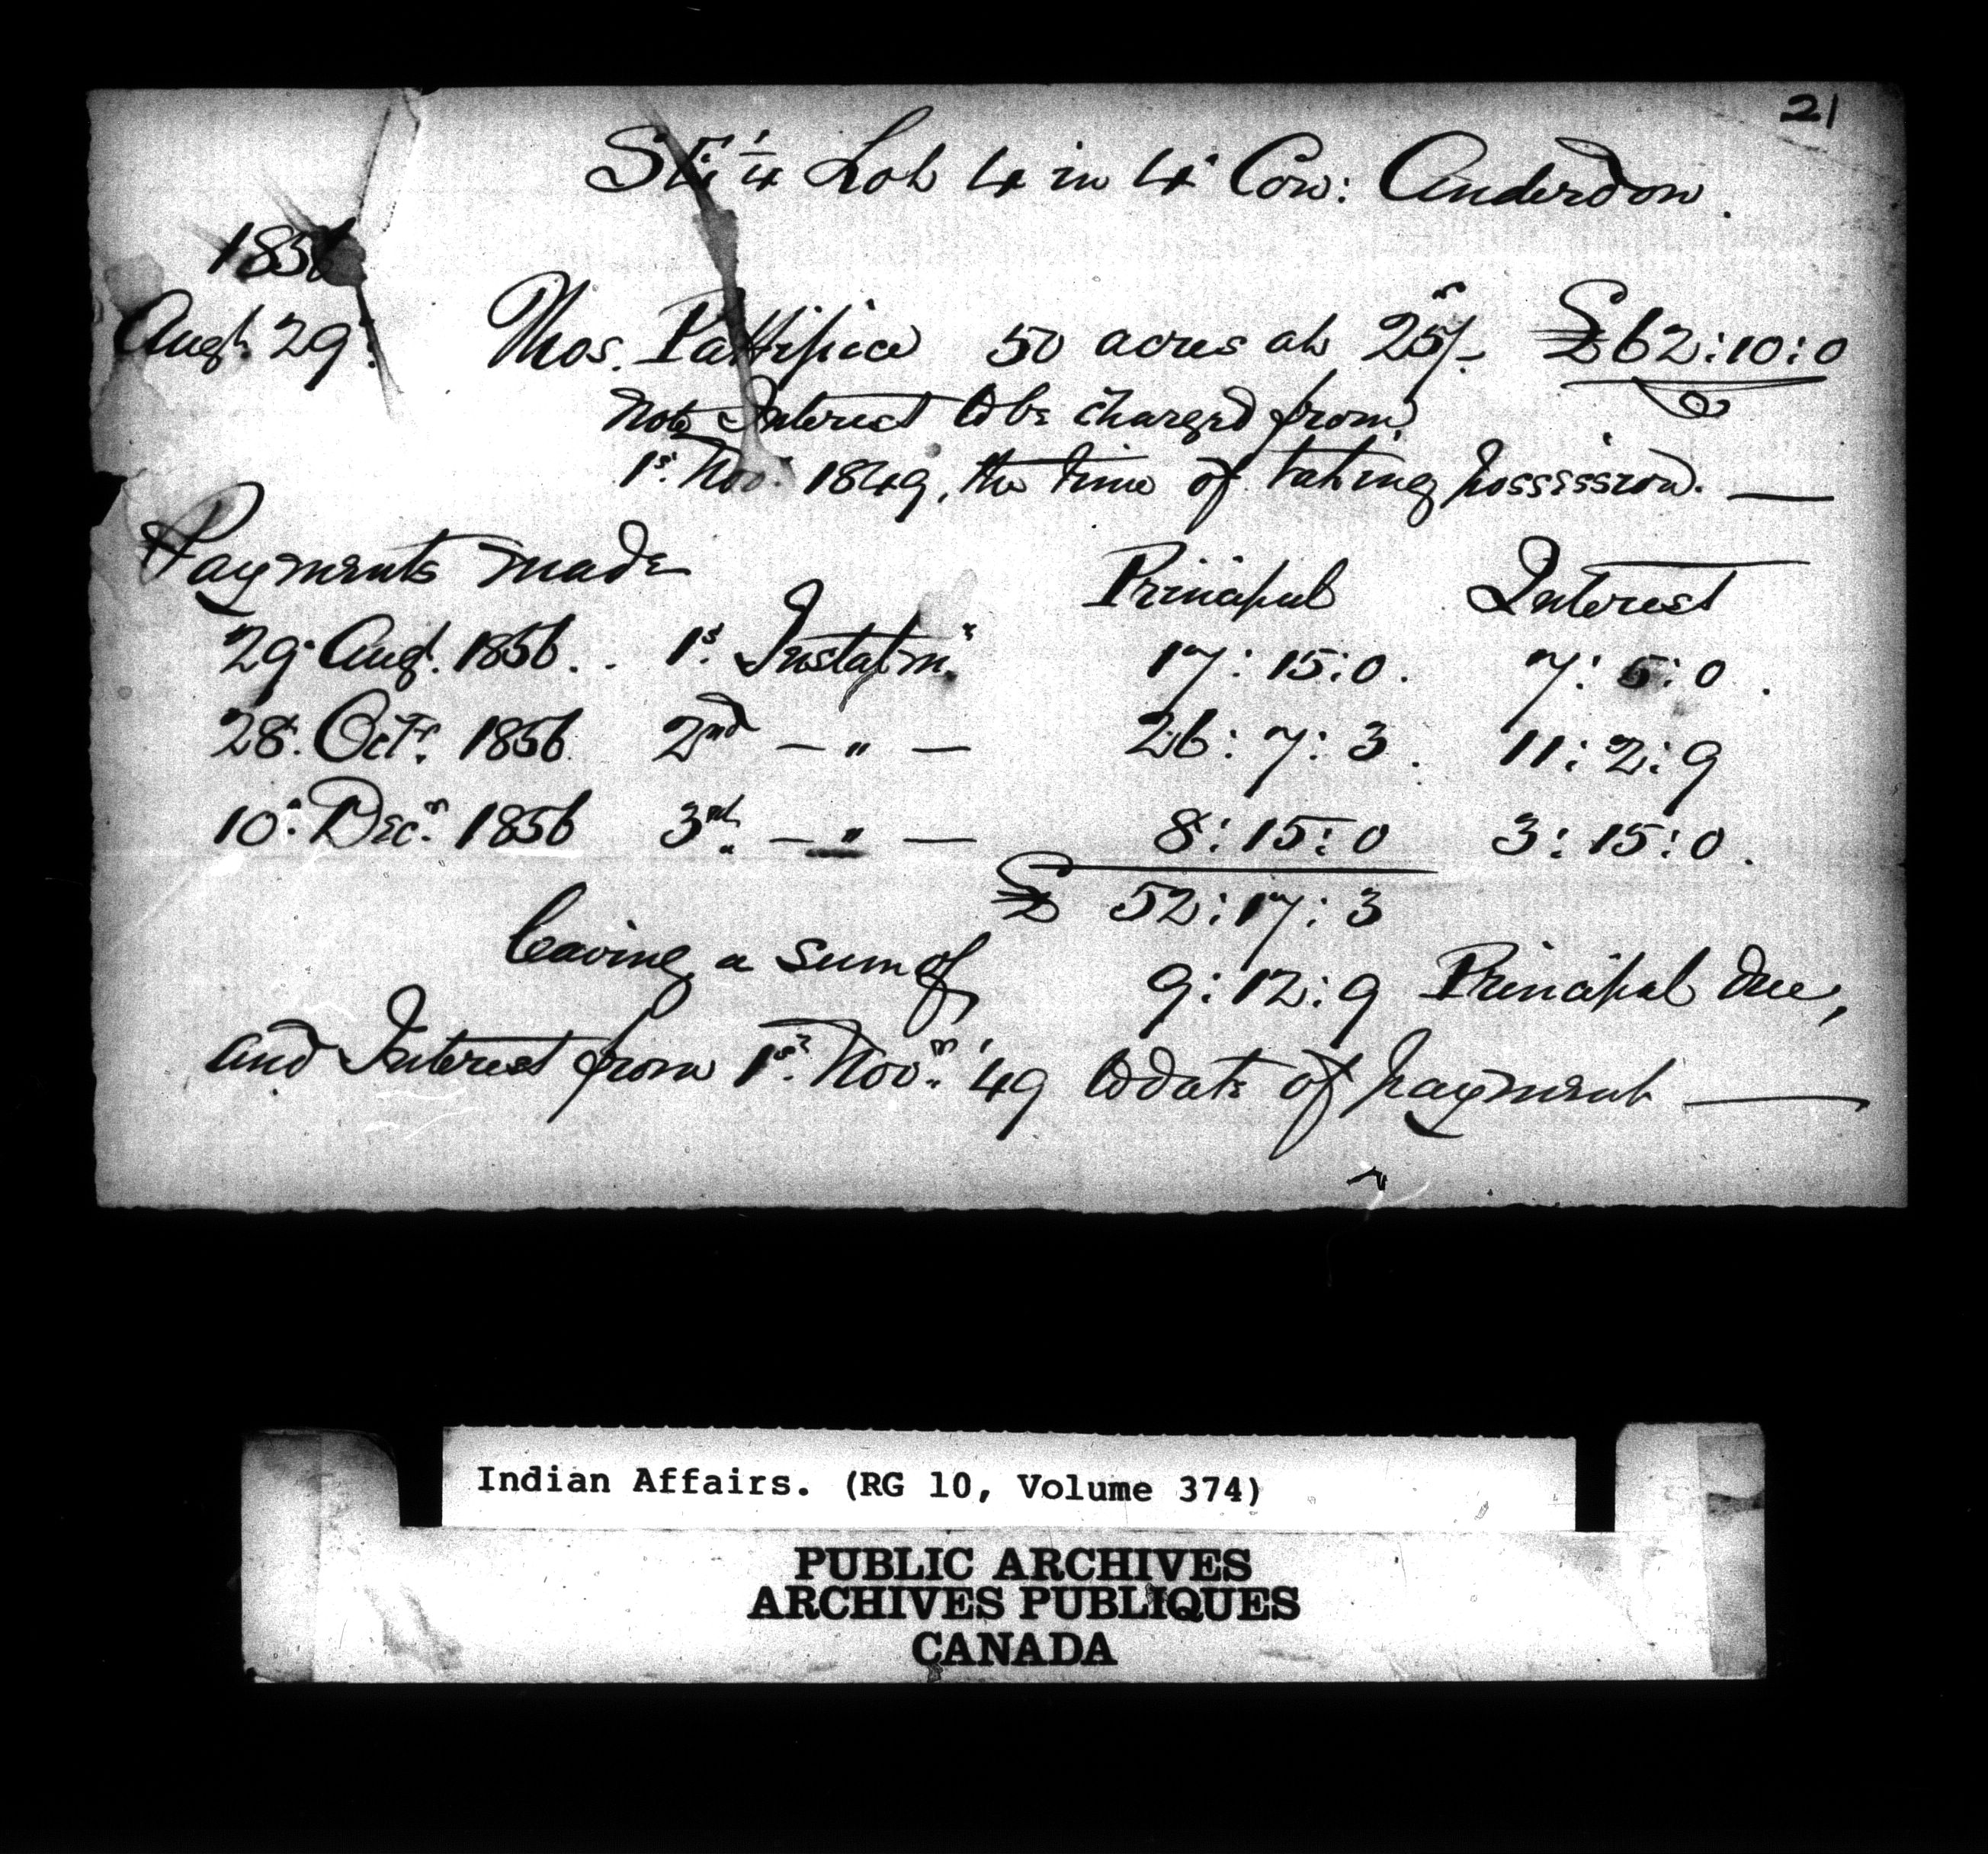 21
SE 1/4 Lot 4 in 4 Con: Anderdon.
1856
Augt. 29. Thos. Pattipice 50 acres at 25/- £62:10:0
Note Interest to be charged from
1st. Novr. 1849, the time of taking possession. —
Payments made Principal Interest
29 Augt. 1856. . 1st. Instalmt. 17:15:0. 7:5:0.
28. Octr. 1856 2nd — " — 26:7:3. 11:2:9
10. Decr. 1856 3rd. — " — 8:15:0 3:15:0.
£ 52:17:3
leaving a sum of 9:12:9 Principal due,
and Interest from 1st. Novr. '49 to date of payment —
Indian Affairs. (RG 10, Volume 374)
PUBLIC ARCHIVES
ARCHIVES PUBLIQUES
CANADA